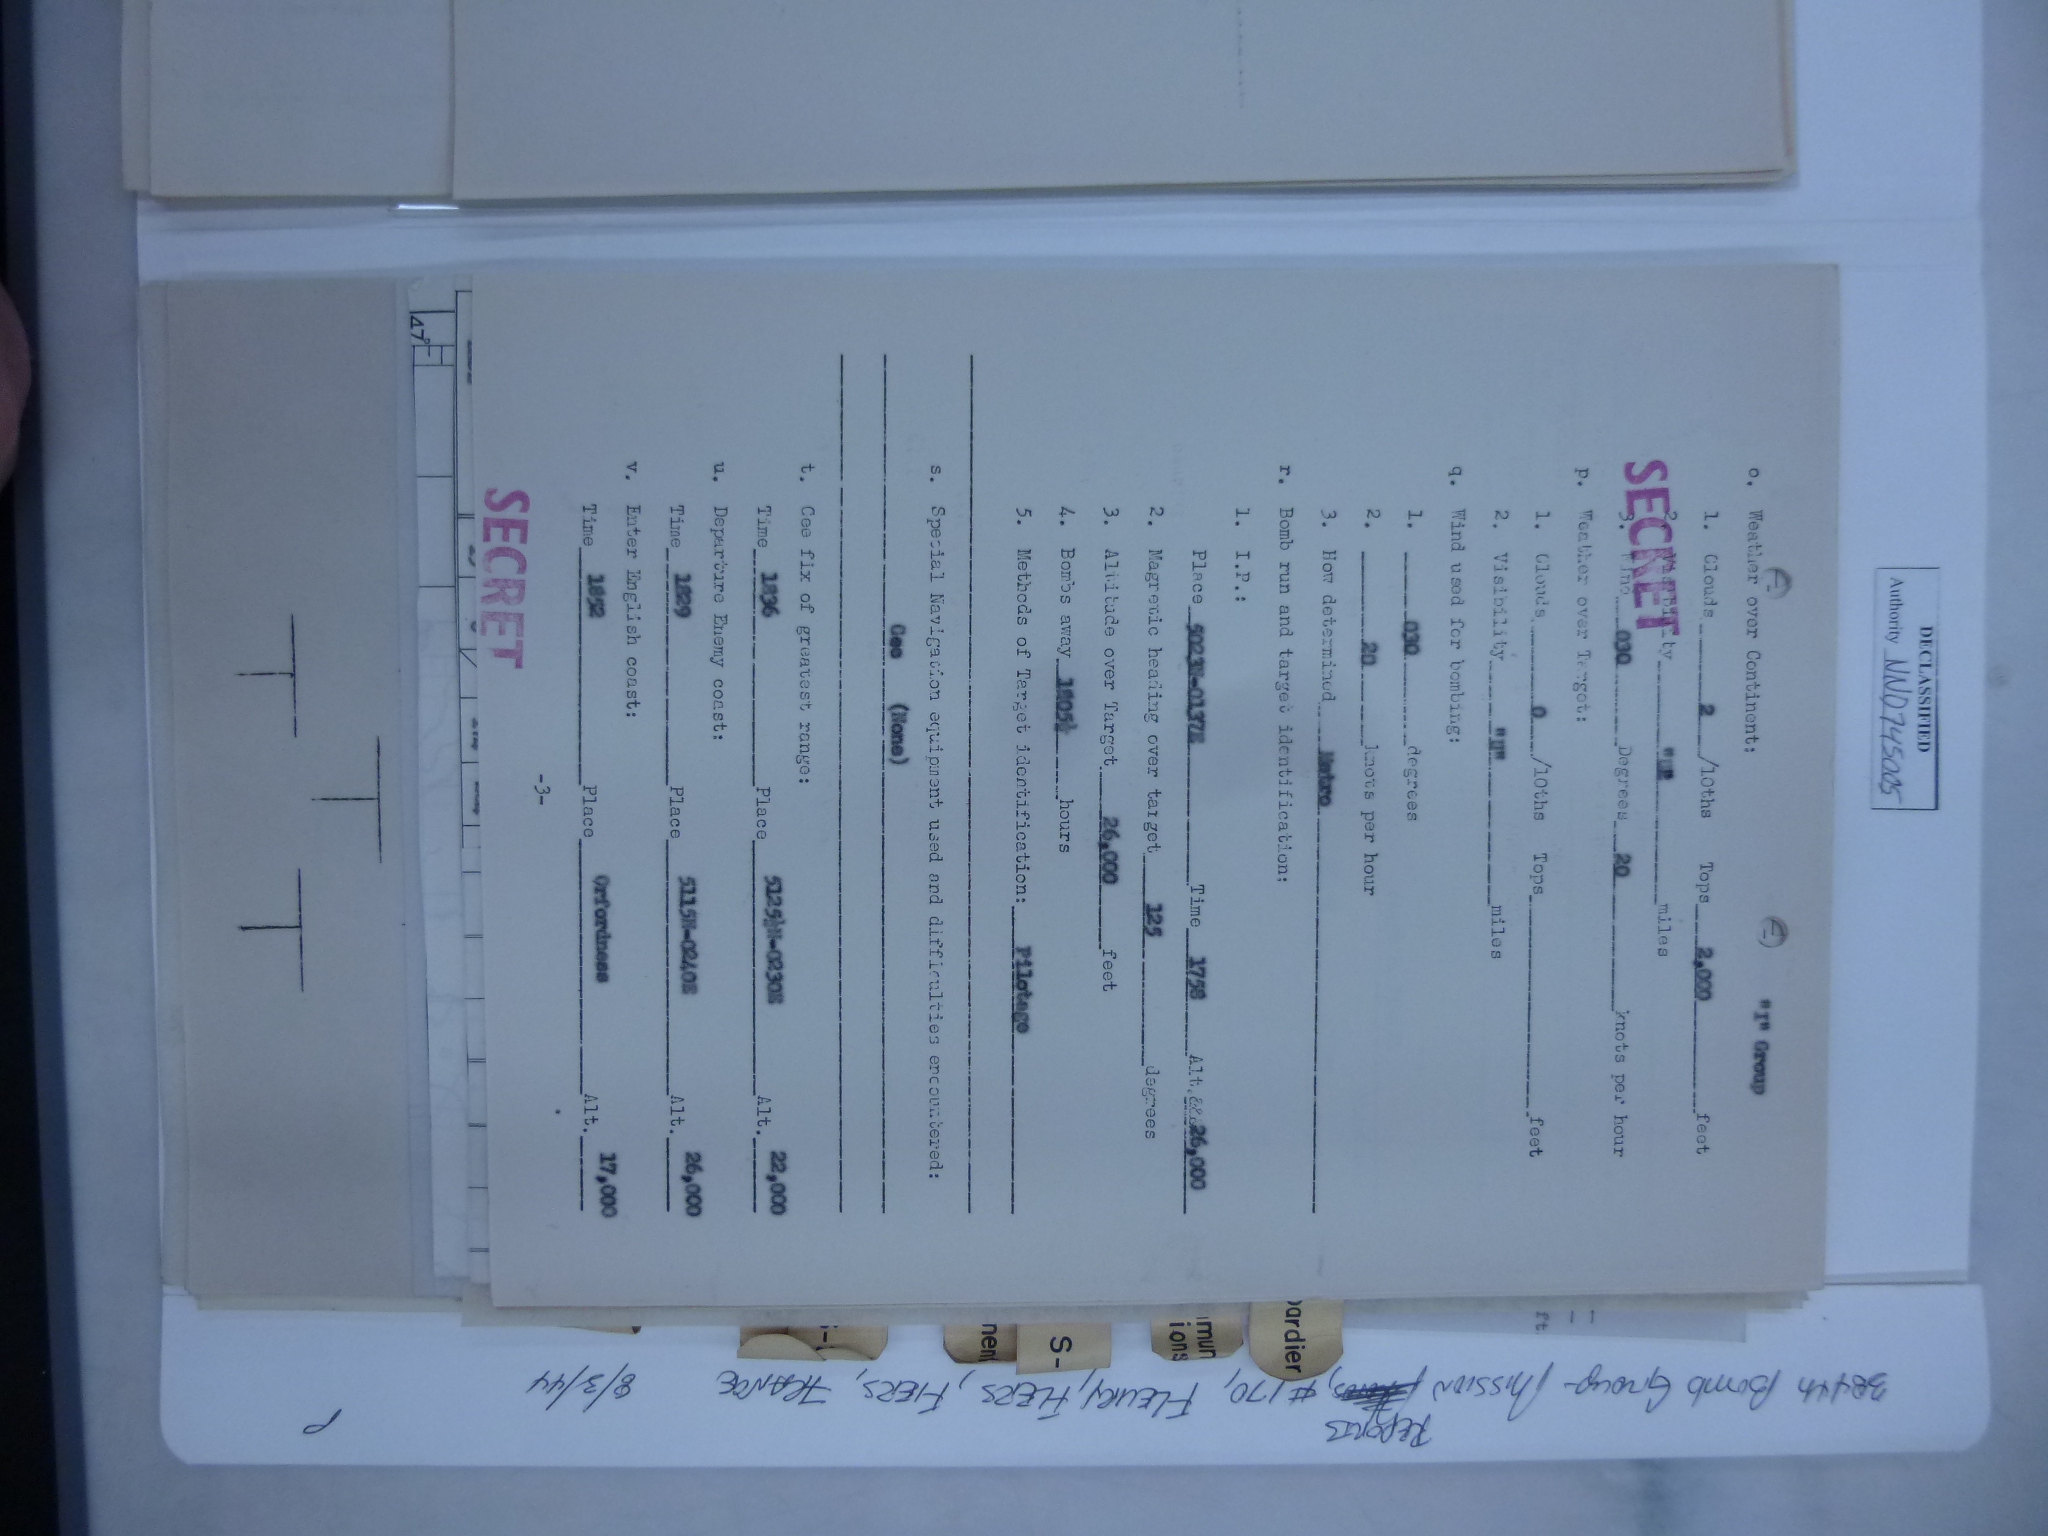 DECLASSIFIED
Authority NND 745005
"I" Group
o. Weather over Continent:
1. Clouds 2 /10ths Tops 2,000 feet
2. "U" miles
3. 030 Degrees 20 knots per hour
SECRET
p. Weather over Target:
1. Clouds 0 /10ths Tops feet
2. Visibility "U" miles
q. Wind used for bombing:
1. 030 degrees
2. 20 knots per hour
3. How determined Metro
r. Bomb run and target identification:
1. I.P.:
Place 5023N-0137E Time 1758 Alt. 26,000
2. Magnetic heading over target 125 degrees
3. Altitude over Target 26,000 feet
4. Bombs away 1805½ hours
5. Methods of Target identification: Pilotage
s. Special Navigation equipment used and difficulties encountered:
Gee (None)
t. Gee fix of greatest range:
Time 1836 Place 5125½N-0230E Alt. 22,000
u. Departure Enemy coast:
Time 1829 Place 5115N-0240E Alt. 26,000
v. Enter English coast:
Time 1852 Place Orfordness Alt. 17,000
-3-
SECRET
47°
ft
bardier
mun
ions
S-
men
384th Bomb Group - Mission Reports, #170, FLEURY, FIERS, FIERS, FRANCE 8/3/44
P